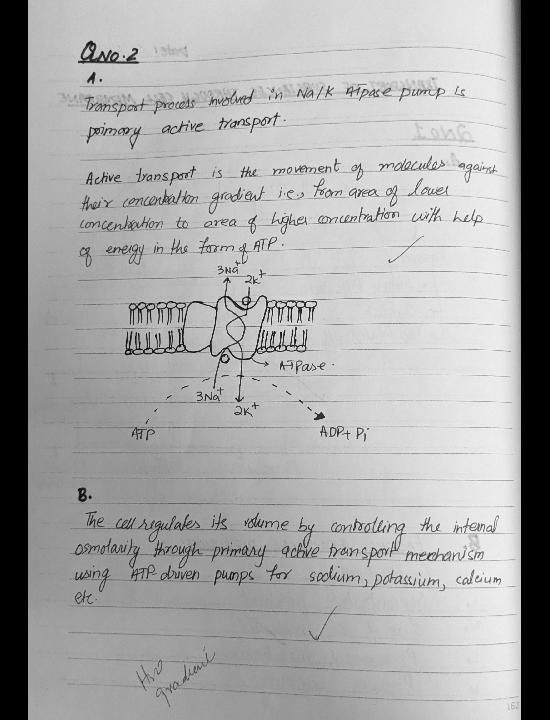 QNO.2
A.
Transport process involved in Na/K ATpase pump is
primary active transport.
Active transport is the movement of molecules against
their concentration gradient i.e., from area of lower
concentration to area of higher concentration with help
of energy in the form of ATP.
3Na+
2K+
ATPase.
3Na+
2K+
ATP
ADP+ Pi
B.
The cell regulates its volume by controlling the internal
osmolarity through primary active transport mechanism
using ATP driven pumps for sodium, potassium, calcium
etc.
gradient
162